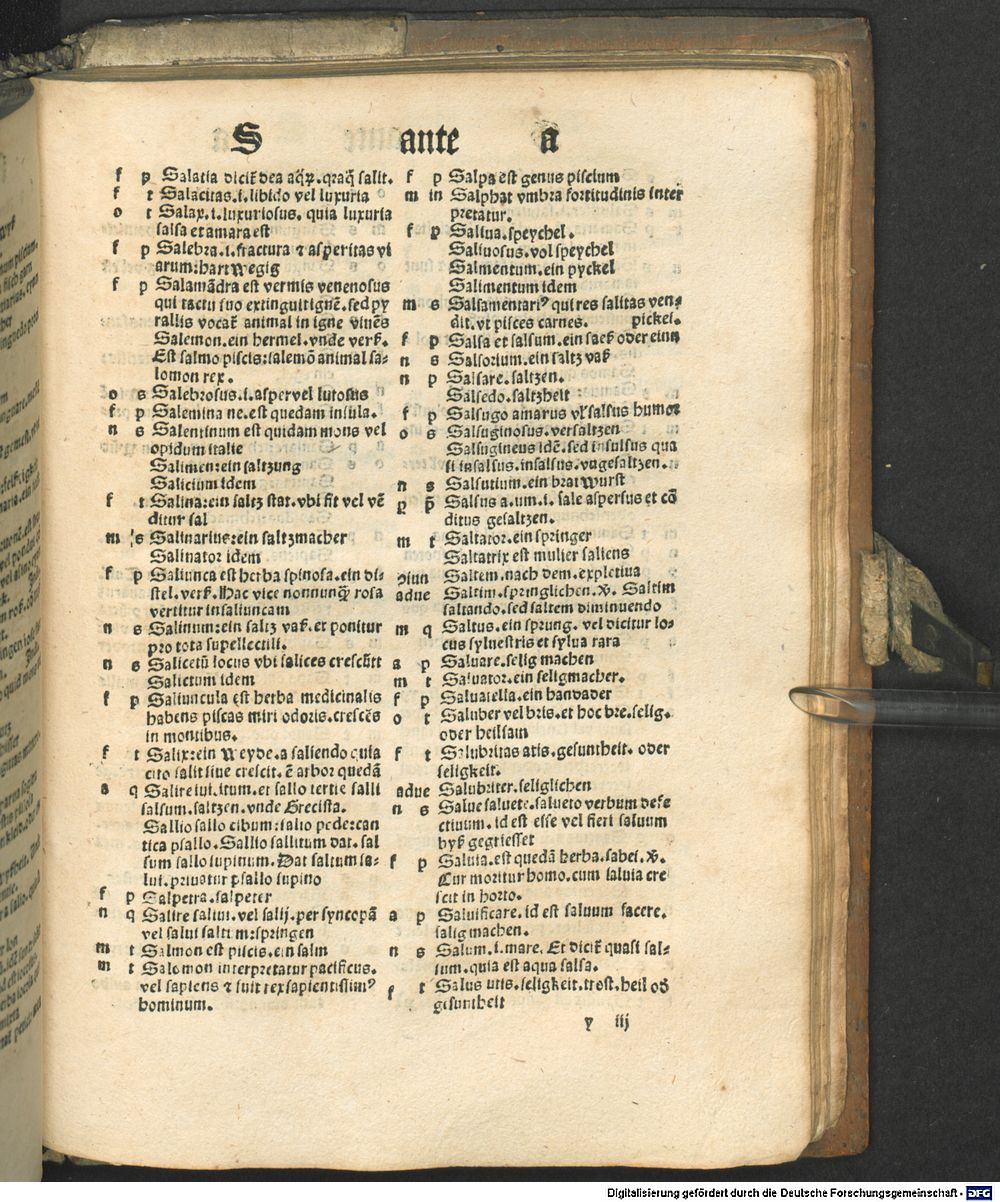 S ante a
f p Salatia dicit̃ dea aq̃ꝝ. quaq̃ salit.
f t Salacitas .i. libido vel luxuria
o t Salax .i. luxuriosus. quia luxuria
salsa et amara est
f p Salebra .i. fractura ⁊ asperitas vi
arum: hart wegig
f p Salamãdra est vermis venenosus
qui tactu suo extinguit ignẽ. sed py
rallis vocat̃ animal in igne viuẽs
Salemon. ein hermel. vnde verß.
Est salmo piscis: salemõ animal sa-
lomon rex.
o s Salebrosus .i. asper vel lutosus
f p Salemina ne. est quedam insula.
n s Salentinum est quidam mons vel
opidum italie
Salimen: ein saltzung
Salicium idem
f t Salina: ein saltz stat. vbi fit vel vẽ
ditur sal
m s Salinarius: ein saltzmacher
Salinator idem
f p Saliunca est herba spinosa. ein di-
stel. verß. Hac vice nonnunq̃ rosa
vertitur in saliuncam
n s Salinum: ein saltz vaß. et ponitur
pro tota supellectili.
n s Salicetũ locus vbi salices crescũt
Salictum idem
f p Saliuncula est herba medicinalis
habens piscas miri odoris. crescẽs
in montibus.
f t Salix: ein Weyde. a saliendo quia
cito salit siue crescit. ẽ arbor quedã
a q Salire iui. itum. et sallo tertie salli
salsum. saltzen. vnde Grecista.
Sallio sallo cibum: salio pede: can
tica psallo. Sallio sallitum dat. sal
sum sallo supinum. Dat saltum sa-
lui. priuatur psallo supino
f p Salpetra. salpeter
n q Salire saliui. vel salij. per syncopã
vel salui saltim: springen
m t Salmon est piscis. ein salm
m t Salomon interpretatur pacificus.
vel sapiens ⁊ fuit rex sapientissimꝰ
hominum.
f p Salpa est genus piscium
m in Salphat vmbra fortitudinis inter
pretatur.
f p Saliua. speychel.
Saliuosus. vol speychel
Salmentum. ein pyckel
Salimentum idem
m s Salsamentariꝰ qui res salitas ven-
dit. vt pisces carnes. pickel.
f p Salsa et salsum. ein saeß oder einn
n s Salsorium. ein saltz vaß
n p Salsare. saltzen.
Salsedo. saltzheit
f p Salsugo amarus vl̃ salsus humor
o s Salsuginosus. versaltzen
Salsugineus idẽ. sed insulsus qua
si insalsus. insalsus. vngesaltzen.
n s Salsutium. ein brat wurst
p p̃ Salsus a. um .i. sale aspersus et cõ
ditus gesaltzen.
m t Saltator. ein springer
Saltatrix est mulier saliens
Saltem. nach dem. expletiua
adue Saltim. springlichen. Saltim
saltando. sed saltem diminuendo
m q Saltus. ein sprung. vel dicitur lo-
cus syluestris et sylua rara
a p Saluare. selig machen
m t Saluator. ein seligmacher.
f p Saluatella. ein handader
o t Saluber vel bris. et hoc bre. selig.
oder heilsam
f t Salubritas atis. gesuntheit. oder
seligkeit.
adue Salubriter. seliglichen
n s Salue saluete. salueto verbum defe
ctiuum. id est esse vel fieri saluum
byß gegriesset
f p Saluia. est quedã herba. sabei.
Cur moritur homo. cum saluia cre
scit in horto.
a p Saluificare. id est saluum facere.
salig machen.
n s Salum .i. mare. Et dicit̃ quasi sal-
sum. quia est aqua salsa.
f t Salus utis. seligkeit. trost. heil od
gesuntheit
y iij
Digitalisierung gefördert durch die Deutsche Forschungsgemeinschaft - DFG